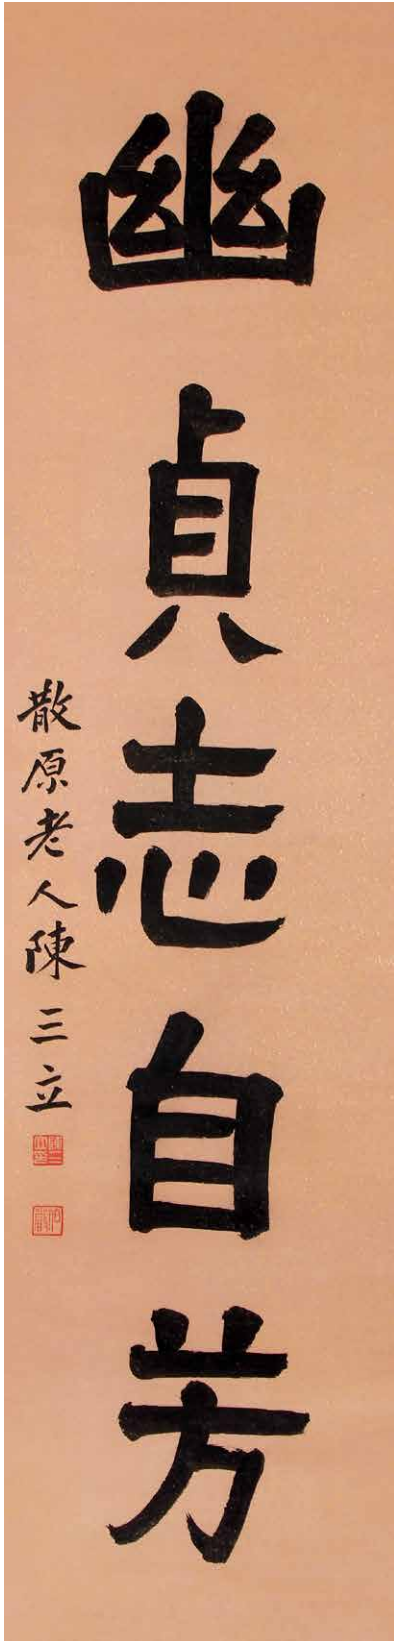 幽貞志自芳
散原老人陳三立